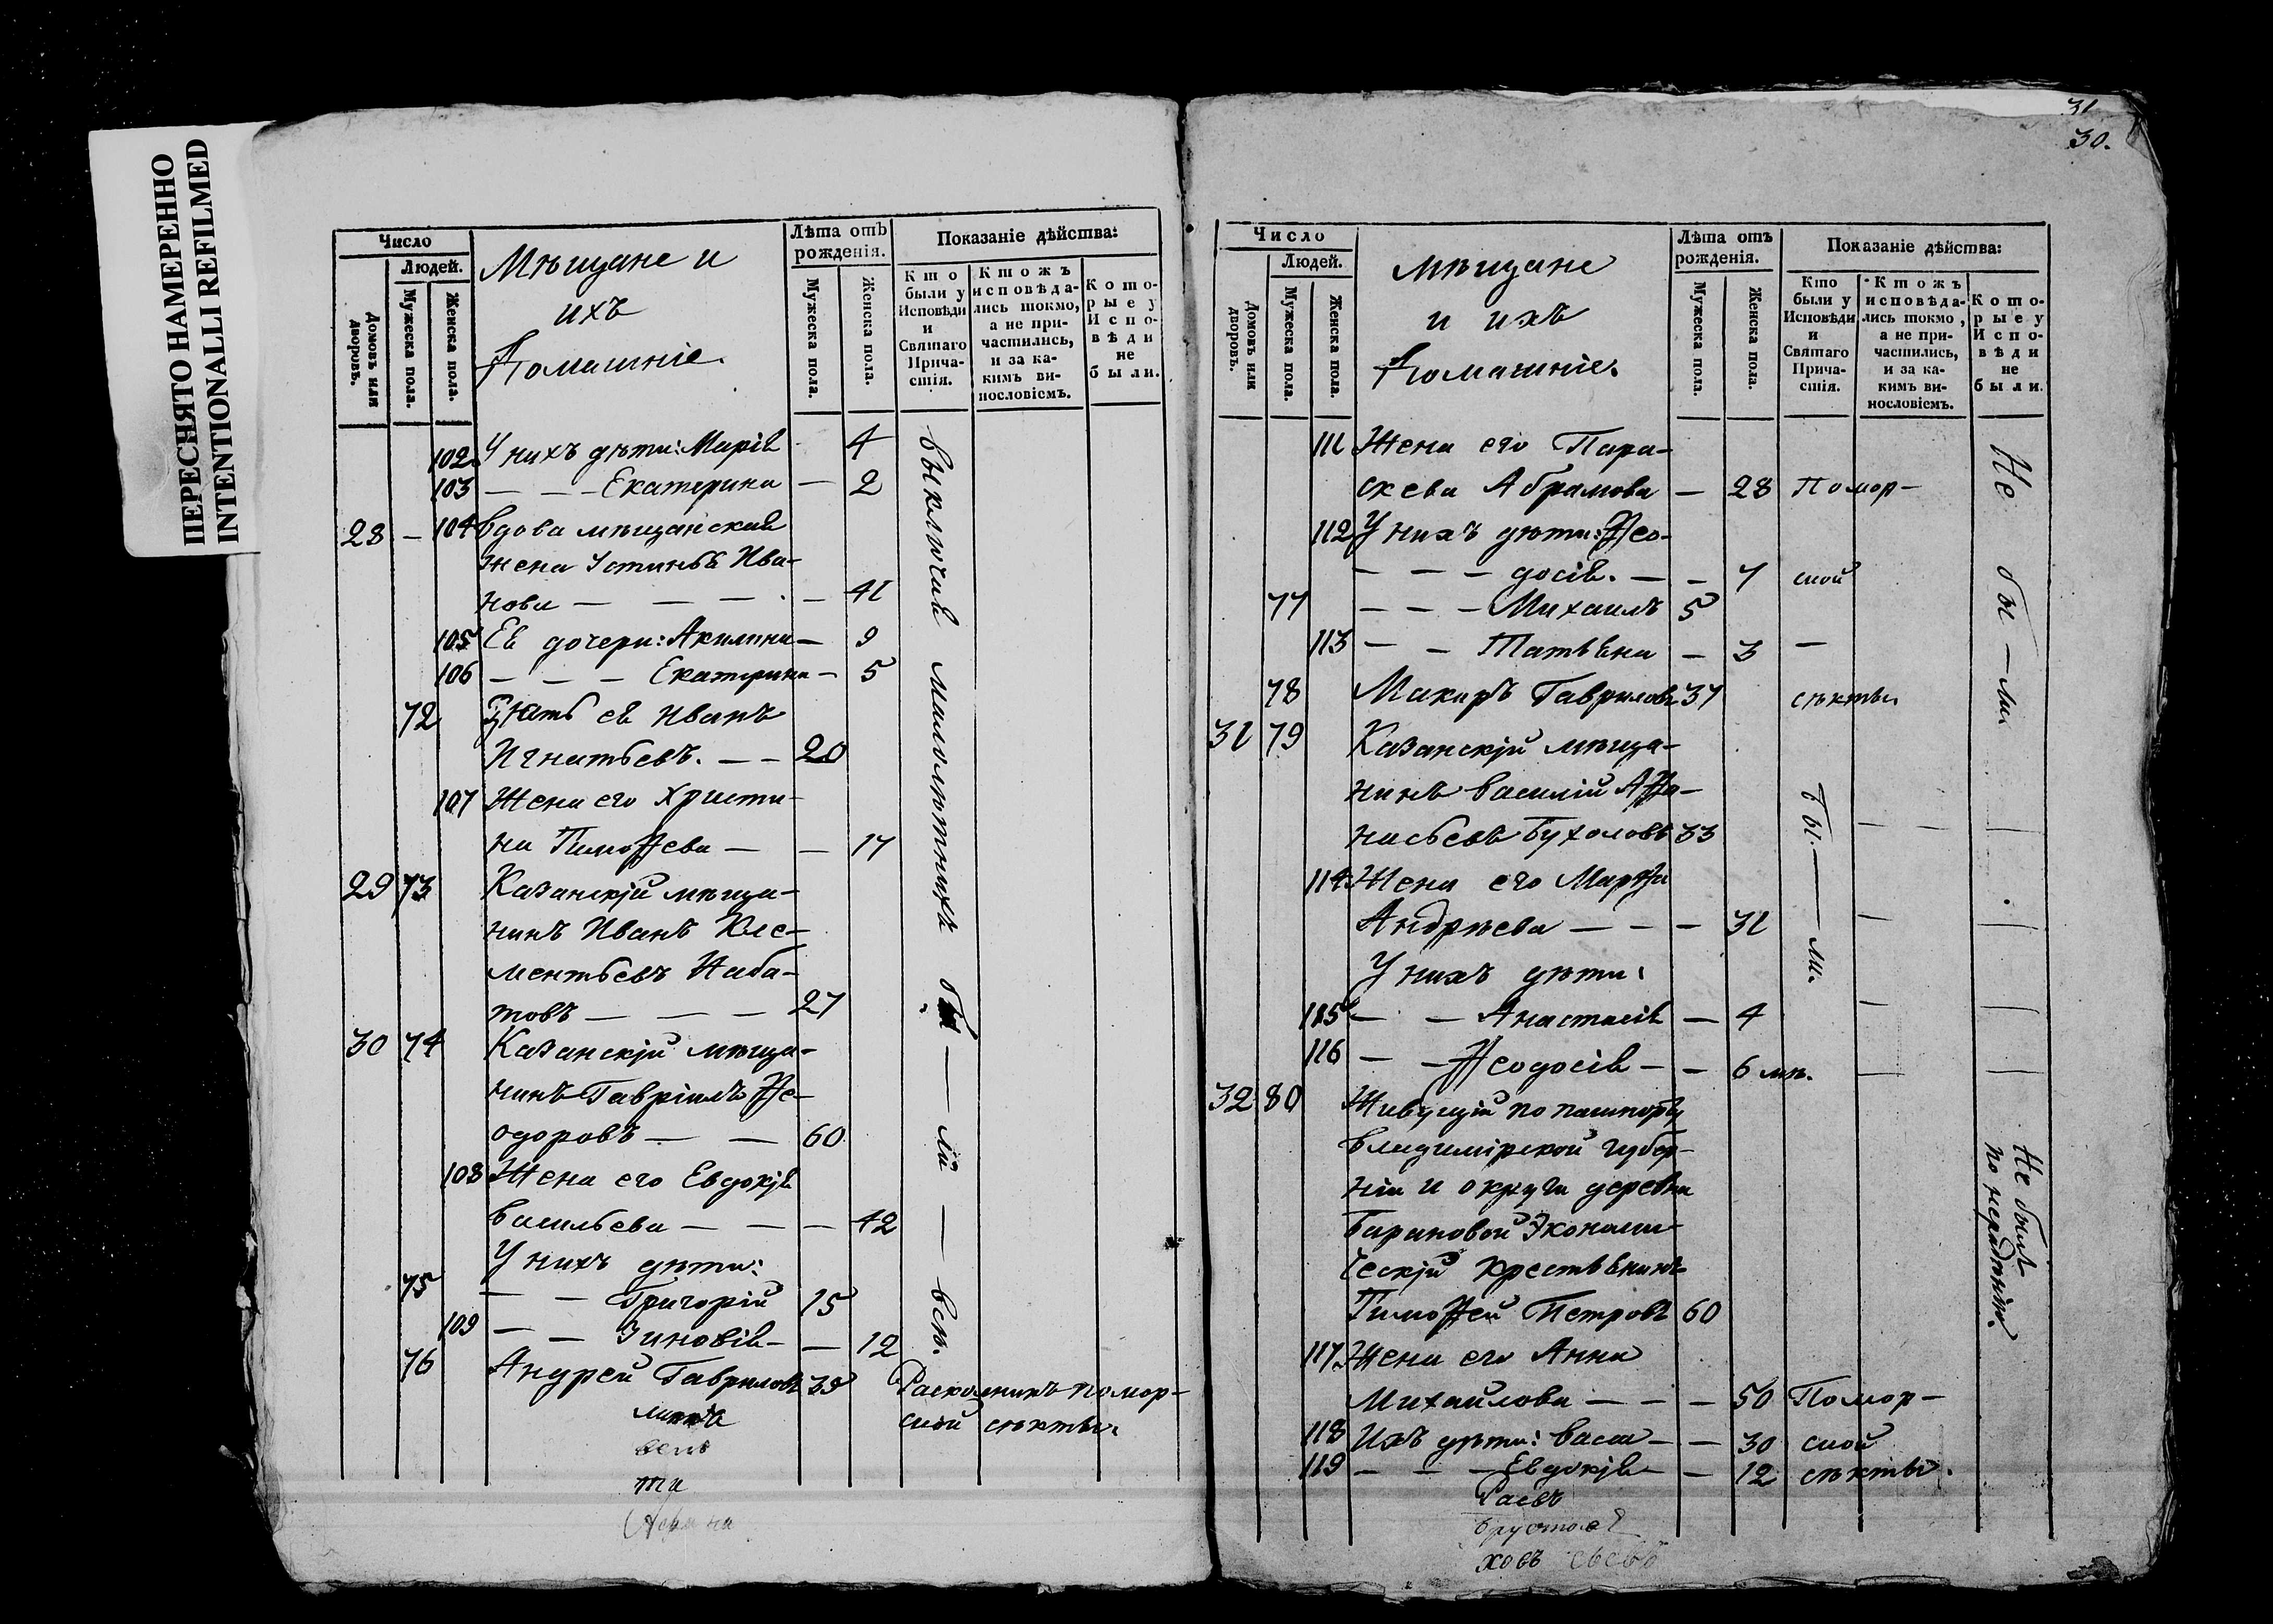 ПЕРЕСНЯТО НАМЕРЕННО
INTENTIONALLI REFILMED
Число
Людей.
Домовъ или дворовъ.
Мужеска пола.
Женска пола.
Мѣщане и
ихъ
Домашніе.
Лѣта отъ
рожденія.
Мужеска пола.
Женска пола.
Показаніе дѣйства:
Кто
были у
Исповѣди
и
Святаго
Прича-
стія.
Ктожъ
исповѣда-
лись токмо,
а не при-
частились,
и за ка-
кимъ ви-
нословіемъ.
Кото-
рые у
Испо-
вѣди
не
были.
102 У нихъ дѣти: Марія — 4
103 — — — Екатерина — 2
28 — 104 Вдова мѣщанская
жена Устинья Ива-
нова — — — — 41
105 Ея дочери: Акилина — 9
106 — — — Екатерина — 5
72 Зять ея Иванъ
Игнатьевъ. — — 20
107 Жена его Христи-
на Тимоѳева — — 17
29 73 Казанскій мѣща-
нинъ Иванъ Кле-
ментьевъ Наба-
товъ — — — 27
30 74 Казанскій мѣща-
нинъ Гавріилъ Ѳе-
одоровъ — — 60
108 Жена его Евдокія
Васильева — — — 42
У нихъ дѣти:
75 — — Григорій 15
109 — — Зиновія — — 12
76 Андрей Гавриловъ 39 Расколникъ помор-
ской секты.
Выключая малолѣтнихъ бы — ли — вси.
та
31
30.
Число
Людей.
Домовъ или дворовъ.
Мужеска пола.
Женска пола.
Мѣщане
и ихъ
Домашніе.
Лѣта отъ
рожденія.
Мужеска пола.
Женска пола.
Показаніе дѣйства:
Кто
были у
Исповѣди
и
Святаго
Прича-
стія.
Ктожъ
исповѣда-
лись токмо,
а не при-
частились,
и за ка-
кимъ ви-
нословіемъ.
Кото-
рые у
Испо-
вѣди
не
были.
111 Жена его Пара-
скева Абрамова — 28 Помор-
112 У нихъ дѣти: Ѳео-
— — — досія. — — 7 ской
77 — — — Михаилъ 5
113 — — Татьяна — 3 —
78 Макаръ Гавриловъ 37 секты.
31 79 Казанскій мѣща-
нинъ Василій Аѳа-
насьевъ Бухоловъ 33
114 Жена его Марѳа
Андрѣева — — — 31
У нихъ дѣти:
115 — — Анастасія — 4
116 — — Ѳеодосія — — 6 мѣ.
Бы. — ли.
Не бы — ли.
32 80 Живущій по пашпорту
Владимірской губер-
ніи и округи деревни
Барановой Экономи-
ческій крестьянинъ
Тимоѳей Петровъ 60
117 Жена его Анна
Михайлова — — — 50 Помор-
118 Ихъ дѣти: Васса — — 30 ской
119 — — — Евдокія — — 12 секты.
Не были
по нерадѣнію.
ховъ